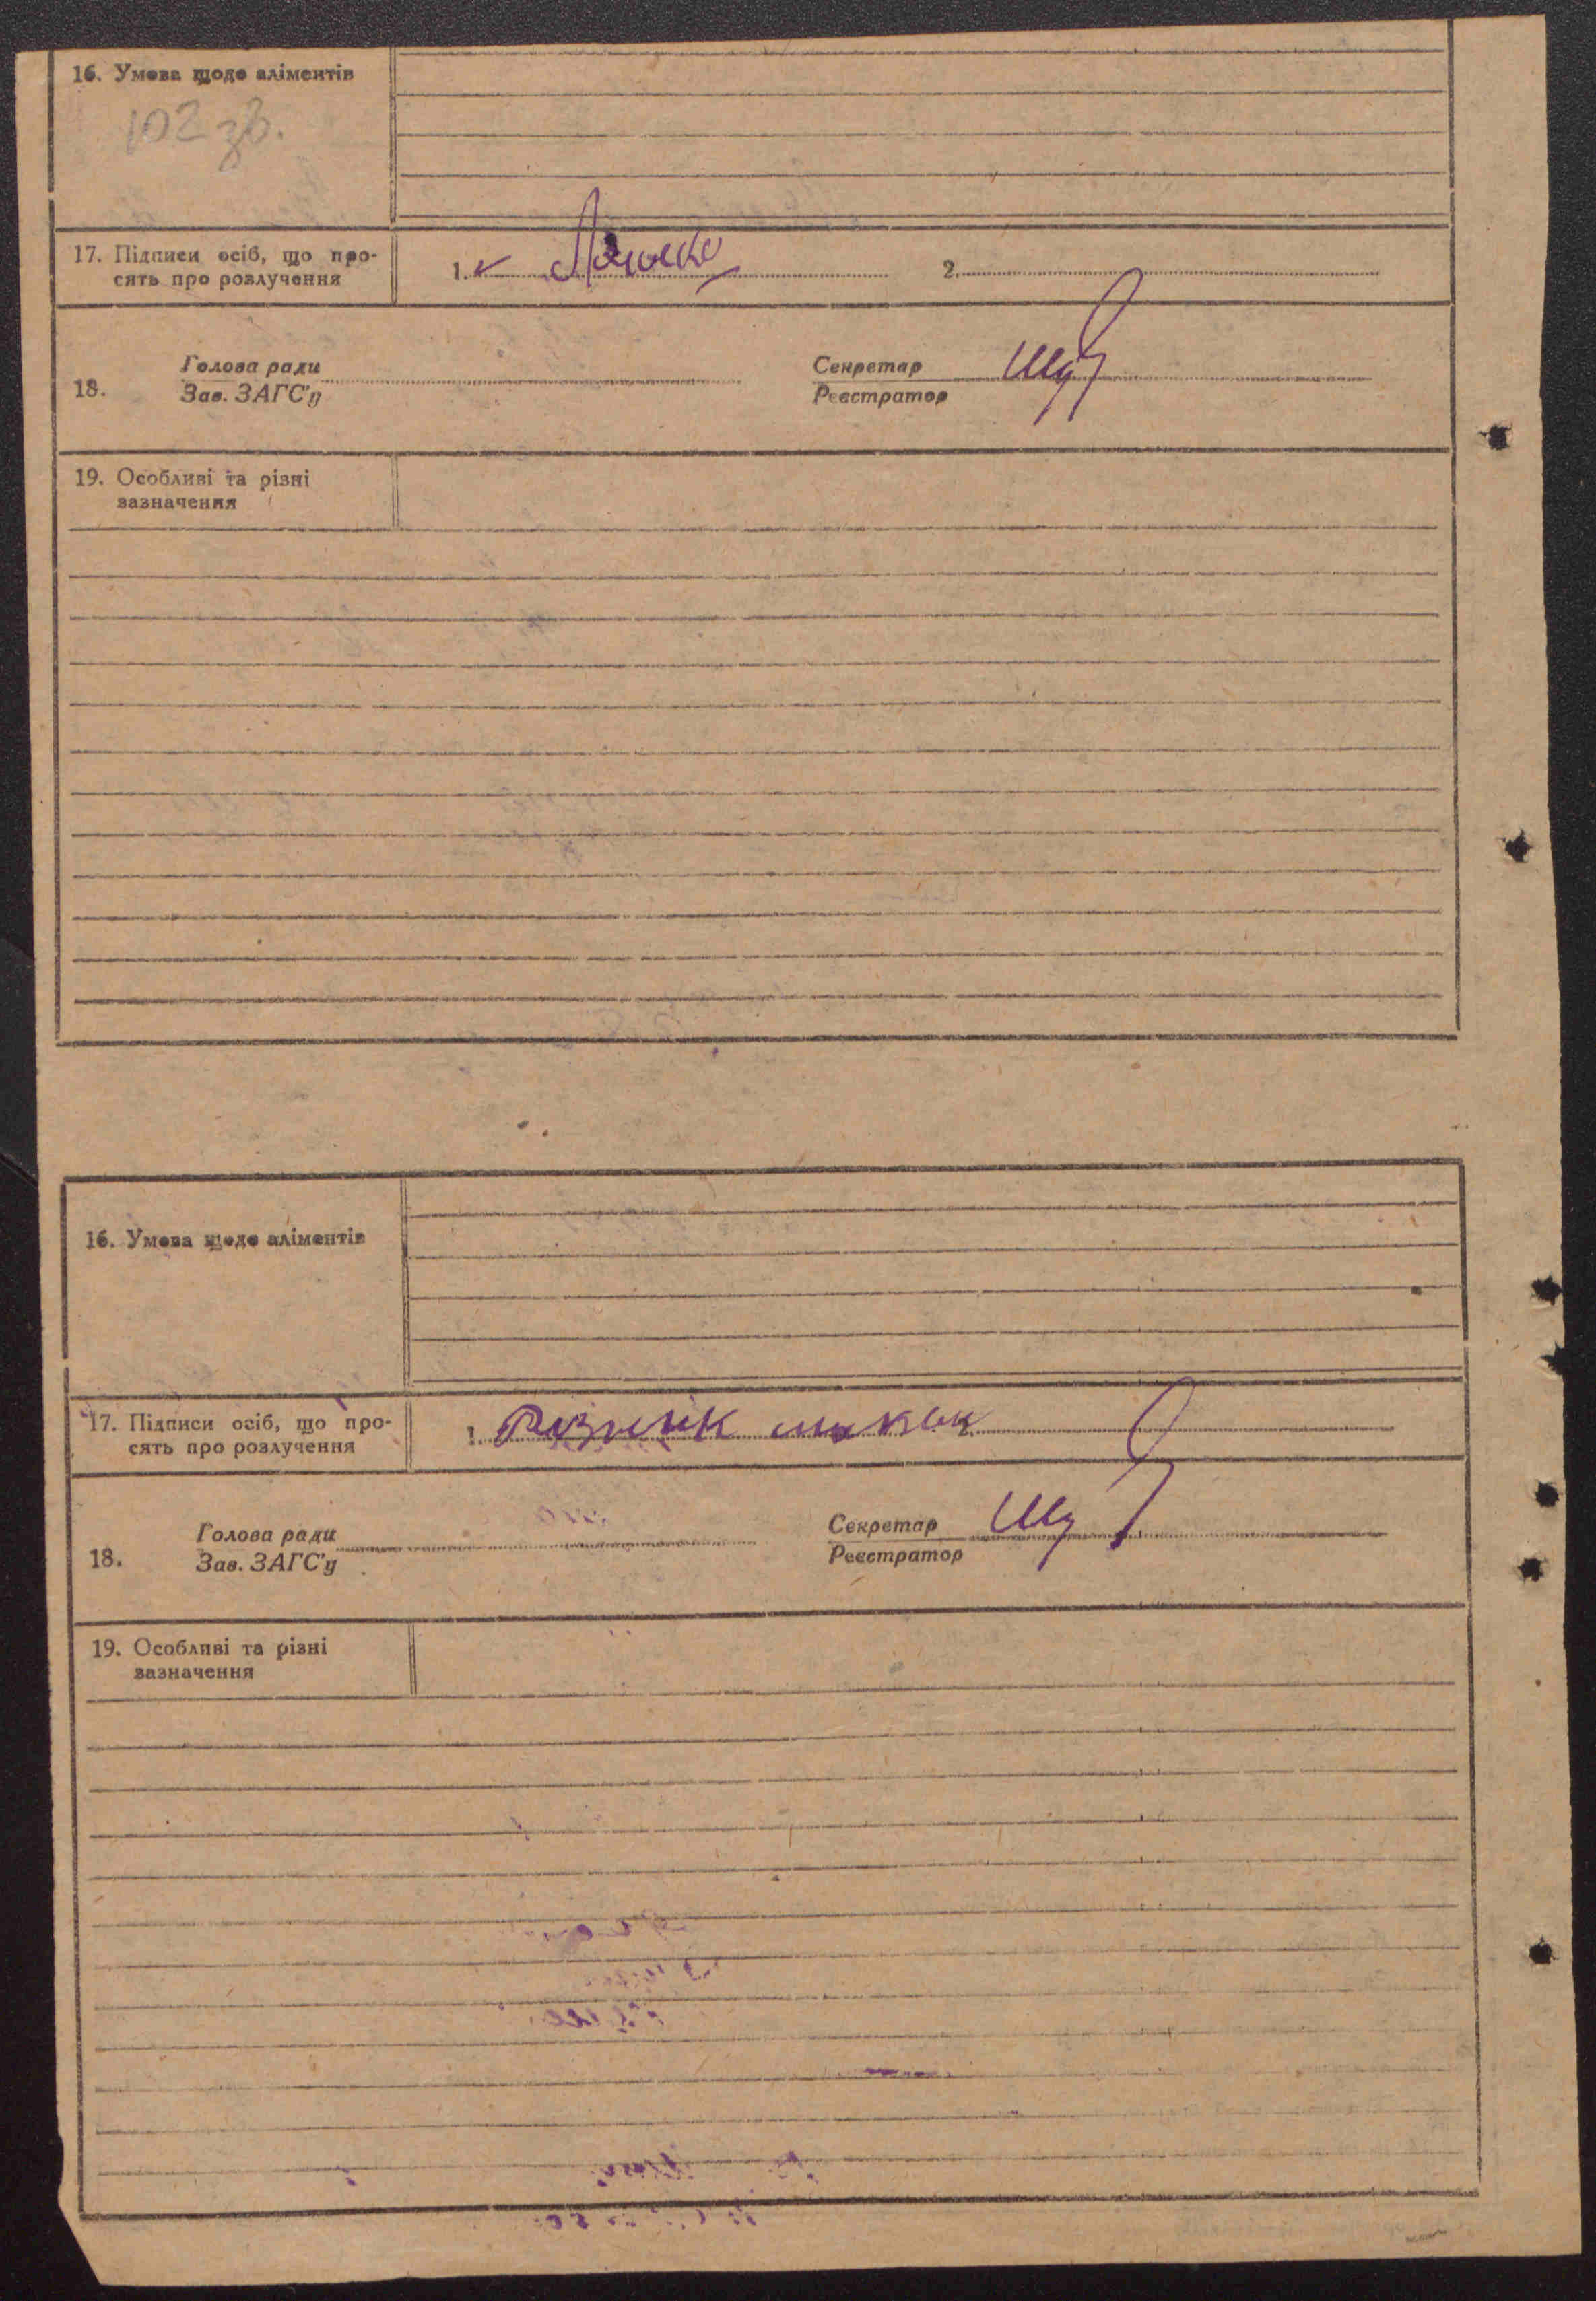 16. Умова щодо аліментів
102 зв.
17. Підписи осіб, що про-
сять про розлучення
1.
2.
18.
Голова ради
Зав. ЗАГС'у
Секретар
Реєстратор
19. Особливі та різні
зазначення
16. Умова щодо аліментів
17. Підписи осіб, що про-
сять про розлучення
1. Різник
18.
Голова ради
Зав. ЗАГС'у
Секретар
Реєстратор
19. Особливі та різні
зазначення